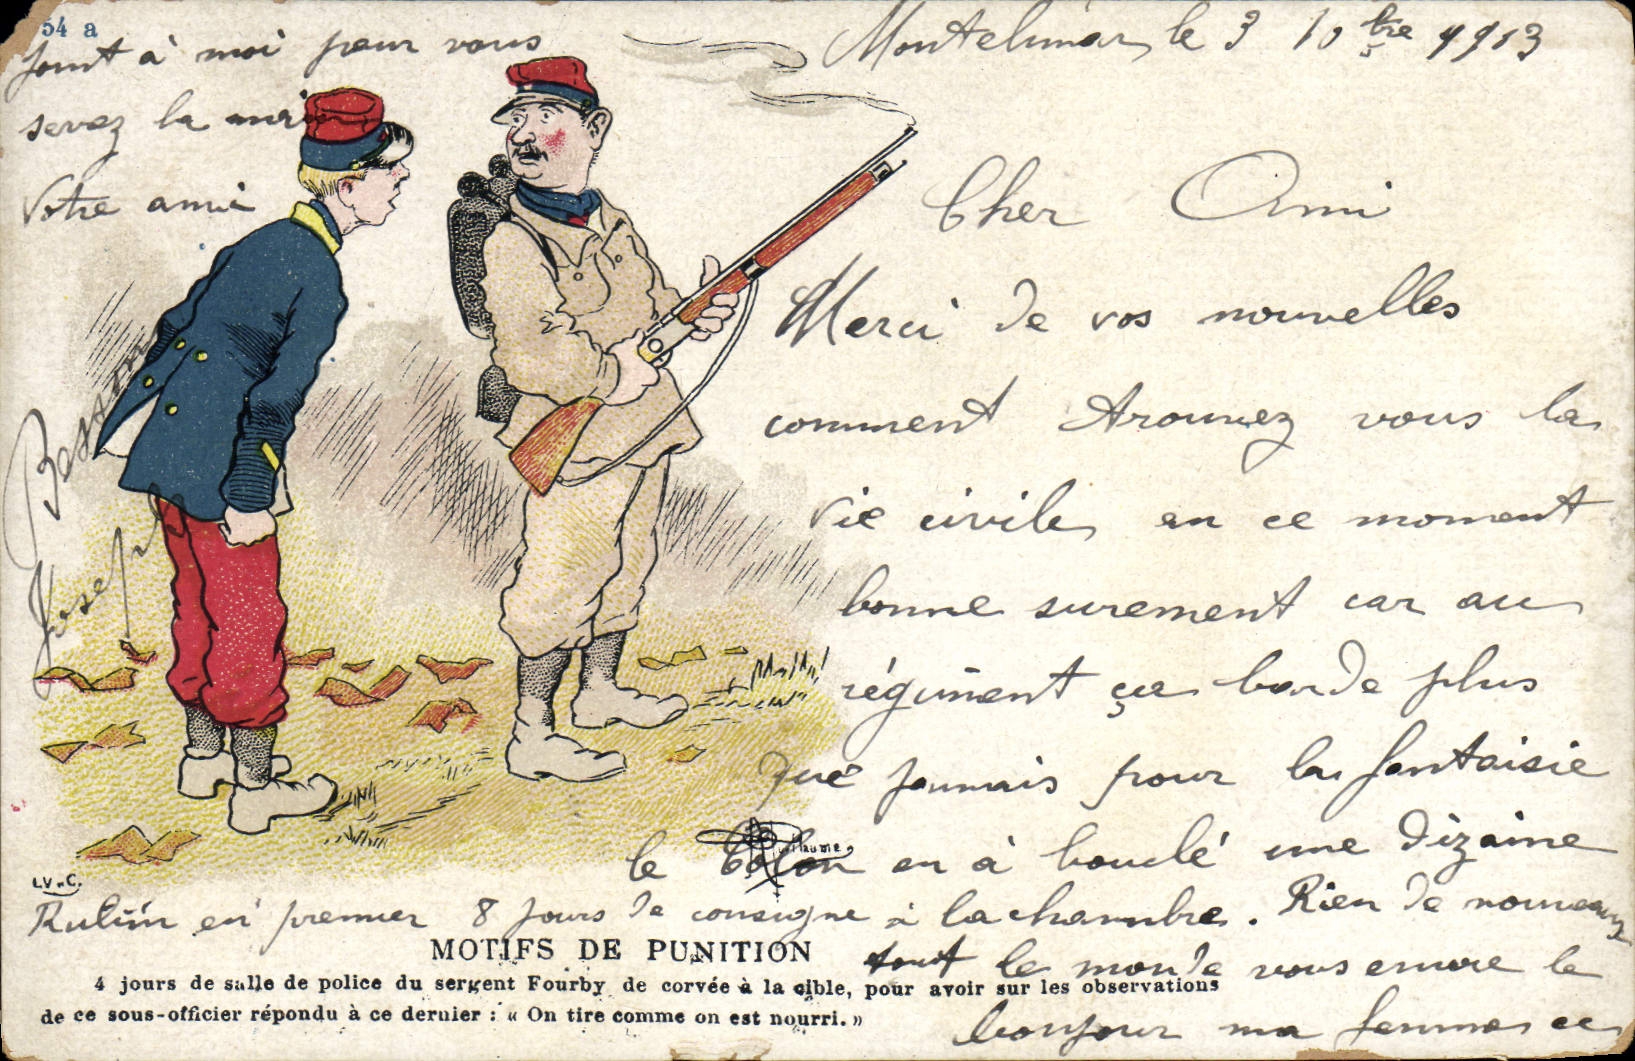 54 a
Montelimar le 3 10bre 1913
Cher Ami
Merci de vos nouvelles
comment trouvez vous la
vie civile en ce moment
bonne surement car au
régiment ça barde plus
que jamais pour la fantaisie
le colon en à bouclé une dizaine
en premier 8 jours de consigne à la chambre. Rien de nouveau
tout le monde vous envoie le
bonjour ma femme ce
joint à moi pour vous
serrez la main
Votre ami
Joseph
Guillaume
L.V & C.
MOTIFS DE PUNITION
4 jours de salle de police du sergent Fourby de corvée à la cible, pour avoir sur les observations
de ce sous-officier répondu à ce dernier : « On tire comme on est nourri. »